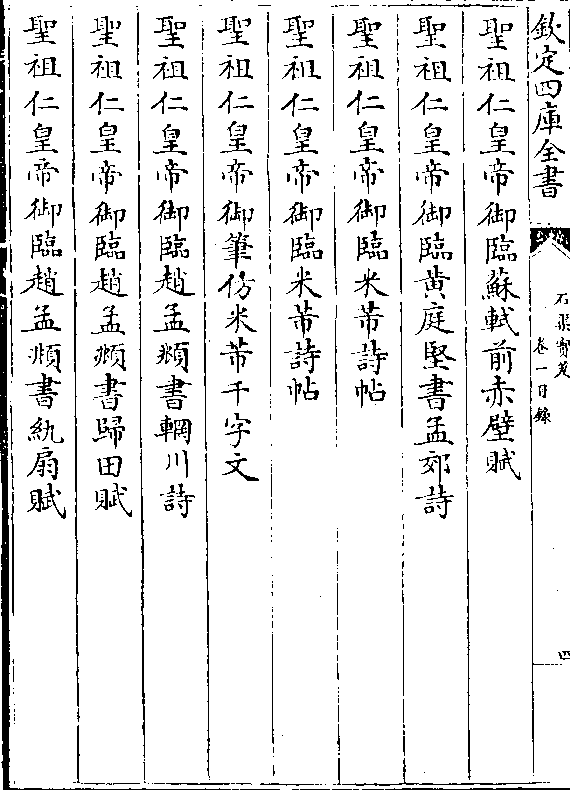 欽定四庫全書
石渠寳笈
卷一目錄
四
聖祖仁皇帝御臨蘇軾前赤壁賦
聖祖仁皇帝御臨黄庭堅書孟郊詩
聖祖仁皇帝御臨米芾詩帖
聖祖仁皇帝御臨米芾詩帖
聖祖仁皇帝御筆仿米芾千字文
聖祖仁皇帝御臨趙孟頫書輞川詩
聖祖仁皇帝御臨趙孟頫書歸田賦
聖祖仁皇帝御臨趙孟頫書紈扇賦